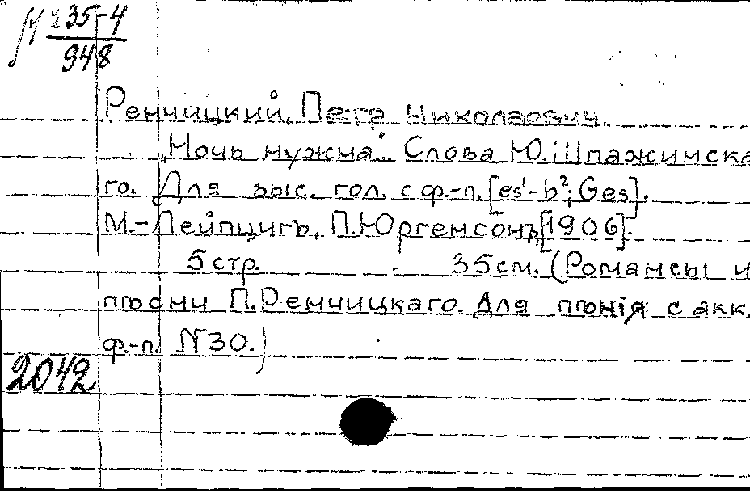 М 235-4
948
Ренчицкий, Петр Николаевич.
„Ночь нужна". Слова Ю. Шпажинска-
го. Для выс. гол. с ф-п. [es¹-b²; Ges].
М.-Лейпцигъ, П. Юргенсонъ, [1906].
5 стр. 35 см. (Романсы и
пѣсни П. Ренчицкаго. Для пѣнія с акк.
ф.-п. N 30.)
2042